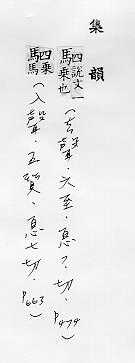 集韻
駟說文一乘也(去聲·六至·息切·P474)
駟乘馬(入聲·五質·息七切·P663)